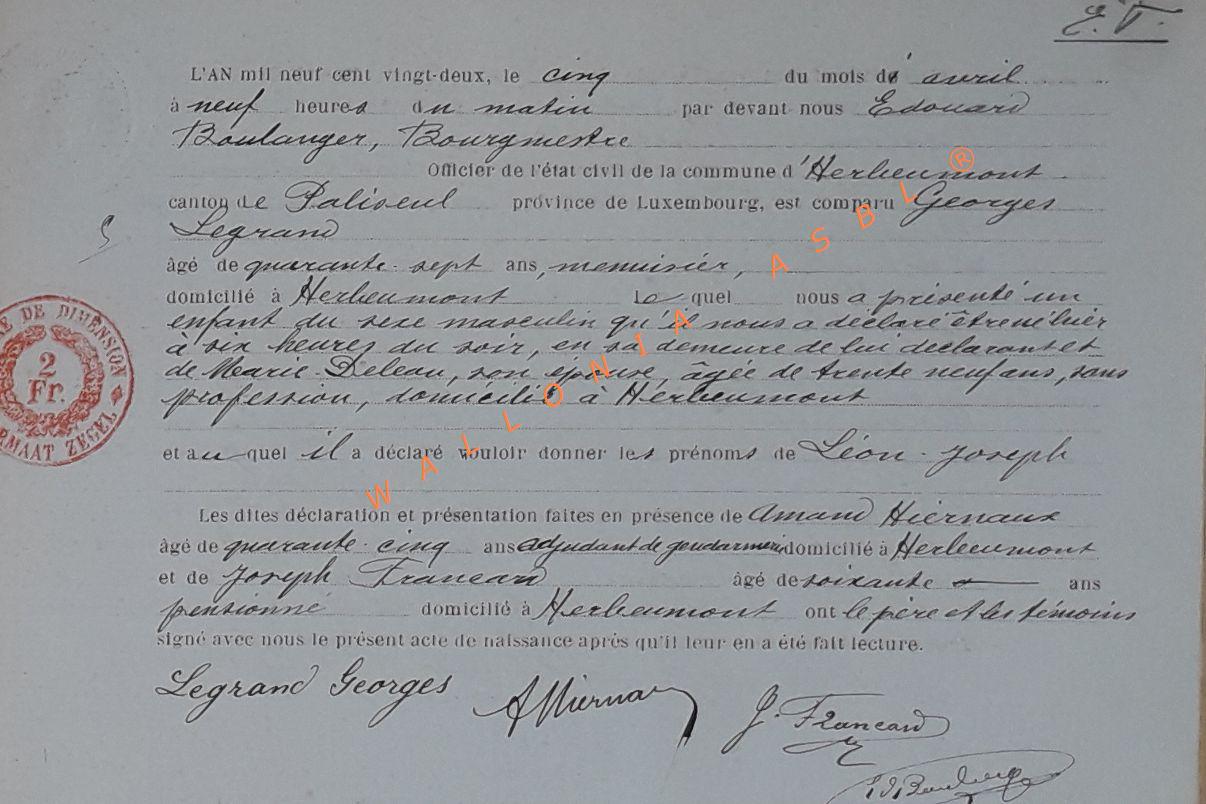 E. T.
L'AN mil neuf cent vingt-deux, le cinq du mois dé avril
à neuf heures du matin par devant nous Edouard
Boulanger, Bourgmestre
Officier de l'état civil de la commune d'Herbeumont
canton de Paliseul province de Luxembourg, est comparu Georges
Legrand
âgé de quarante-sept ans, menuisier,
domicilié à Herbeumont Le quel nous a présenté un
enfant du sexe masculin qu'il nous a déclaré être né hier
à six heures du soir, en sa demeure de lui déclarant et
de Marie Deleau, son épouse, âgée de trente neuf ans, sans
profession, domicilié à Herbeumont
et au quel il a déclaré vouloir donner les prénoms de Léon-Joseph
Les dites déclaration et présentation faites en présence de Amand Hiernaux
âgé de quarante-cinq ans adjudant de gendarmerie domicilié à Herbeumont
et de Joseph Francard âgé de soixante ans
pensionné domicilié à Herbeumont ont le père et les témoins
signé avec nous le présent acte de naissance après qu'il leur en a été fait lecture.
Legrand Georges AHiernaux J. Francard
Ed Boulanger
DE DIMENSION
2
Fr.
FORMAAT ZEGEL
WALLONIA ASBL ®